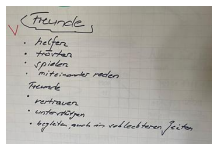 Freunde
• helfen
• trösten
• spielen
• miteinander reden
Freunde
•
• vertrauen
• unterstützen
• begleiten, auch in schlechteren Zeiten